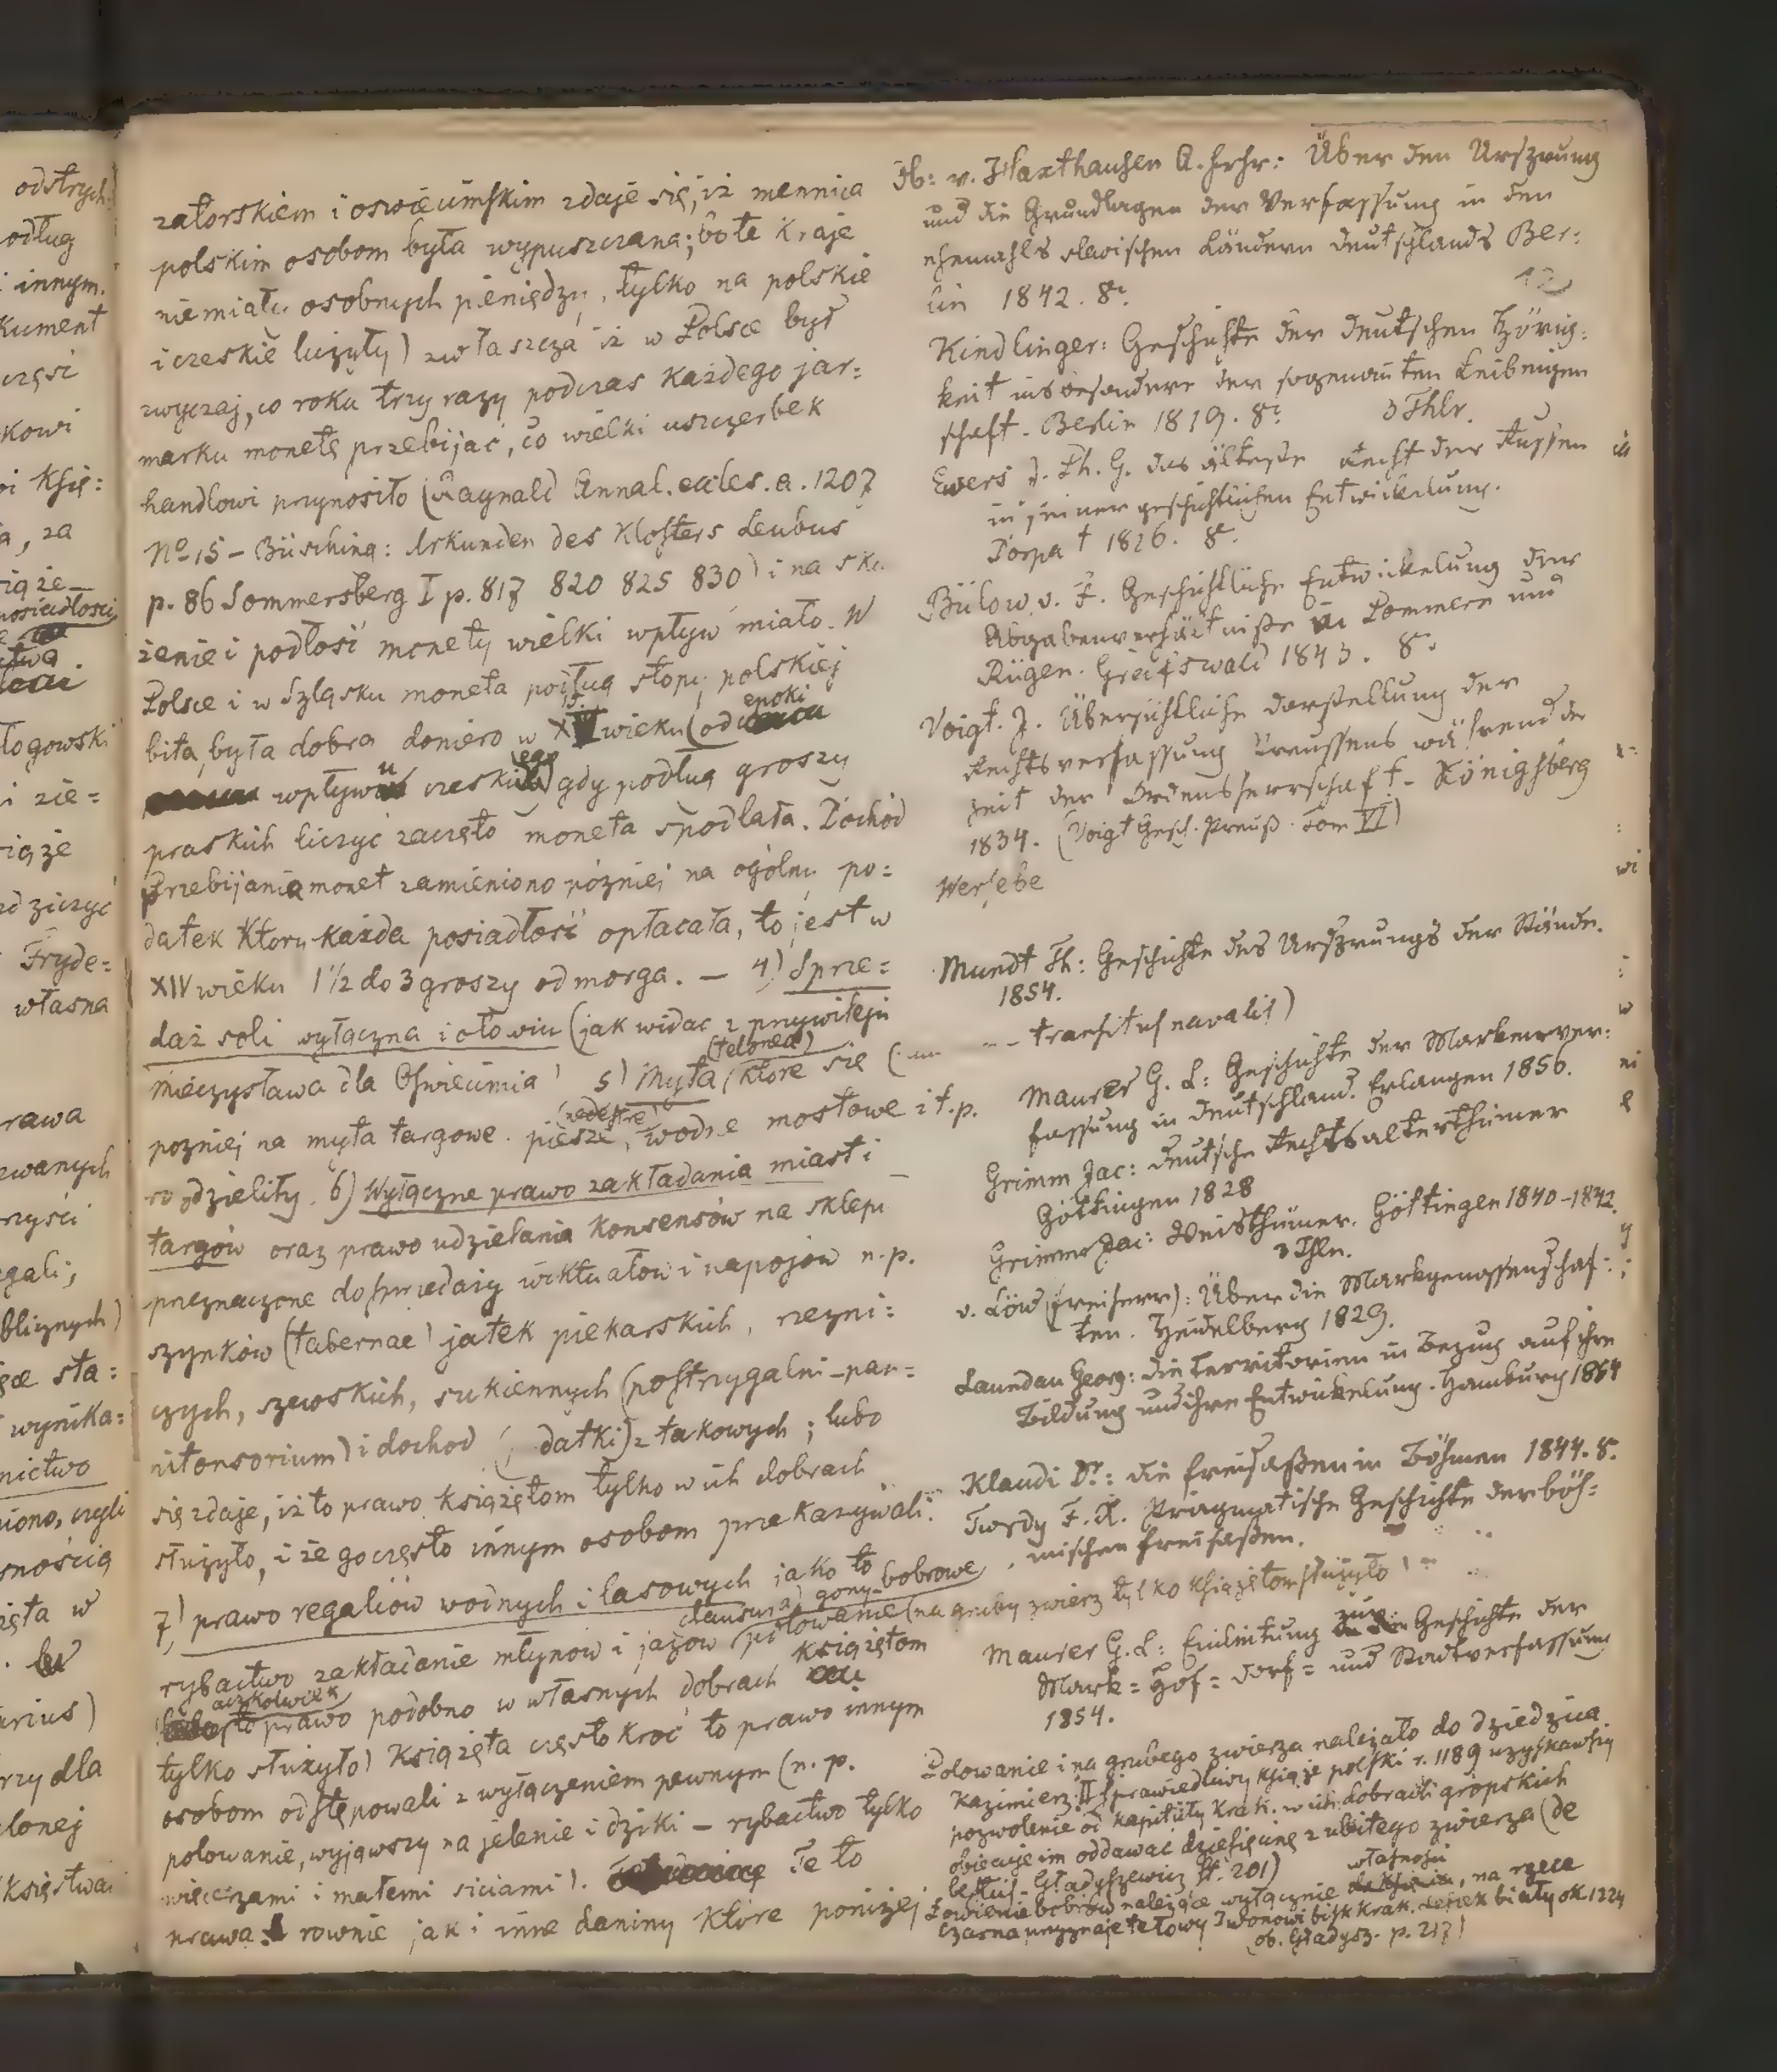 odstrych
odług
innym.
kument
części
kowi
i Księ:
a, za
iąże
posiadłości
łogowski
i zie=
iąże
dziczyć
Fryde=
własna
rawa
zwanych
rzyści
egali;
blicznych)
sta:
wynika:
nictwo
niono, czyli
snością
ięta w
arius)
rzy dla
lonej
księstwa
zatorskiem i oswiecimskim zdaje się, iż mennica
polskim osobom była wypuszczana; bo te kraje
nie miały osobnych pieniędzy, tylko na polskie
i czeskie liczyły) zwłaszcza iż w Polsce był
zwyczaj, co roku trzy razy podczas każdego jar:
marku monetę przebijać, co wielki uszczerbek
handlowi przynosiło (Raynald Annal. eccles. a. 1207
No 15 – Büsching: Urkunden des Klosters Leubus
p. 86 Sommersberg I p. 817 820 825 830) i na ska
żenie i podłość monety wielki wpływ miało. W
Polsce i w Szląsku moneta podług stopy polskiej
bita, była dobra dopiero w wieku (od epoki
wpływu czeskiego) gdy podług groszy
praskich liczyć zaczęto moneta spodlała. Dochod
przebijania monet zamieniono pozniej na ogólny po:
datek który każda posiadłość opłacała, to jest w
XIV wieku 1 1/2 do 3 groszy od morga. — 4) Sprze=
daż soli wyłączna i ołowiu (jak widac z przywileju
Mieczysława dla Oswiecimia) 5) Myta (telonea) które się
pozniej na myta targowe. piesze (pedestre), wodne mostowe i t.p.
rozdzieliły. 6) Wyłączne prawo zakładania miast i
targów oraz prawo udzielania konsensów na sklepy
przeznaczone do sprzedaży wiktuałów i napojów n.p.
szynków (tabernae) jatek piekarskich, rzezni:
czych, szewskich, sukiennych (postrzygalni – pan=
nitonsorium) i dochod (datki) z takowych; lubo
się zdaje, iż to prawo książętom tylko w ich dobrach
służyło, i że go często innym osobom przekazywali.
7) prawo regaliów wodnych i lasowych jako to
rybactwo zakładanie młynów i jazów (clausura) gony bobrowe, polowanie (na gruby zwierz tylko książętom służyło)
aczkolwiek to prawo podobno w własnych dobrach książętom
tylko służyło) Książęta częstokroć to prawo innym
osobom odstępowali z wyłączeniem pewnym (n. p.
polowanie, wyjąwszy na jelenie i dziki – rybactwo tylko
więcierzami i małemi sieciami). Te to
prawa rownie jak i inne daniny które poniżej
Ob: v. Haxthausen A. Frhr: Über den Ursprung
und die Grundlagen der Verfassung in den
ehemahls slavischen Ländern Deutschlands Ber:
lin 1842. 8o.
12
Kindlinger: Geschichte der deutschen Hörig:
keit insbesondere der sogenannten Leibeigen
schaft. Berlin 1819. 8o. 3 Thlr.
Ewers J. Ph. G. das älteste Recht der Russen
in seiner geschichtlichen Entwickelung.
Dorpat 1826. 8.
Bülow v. F. Geschichtliche Entwickelung der
Abgabenverhältniße in Pommern und
Rügen. Greifswald 1843. 8.
Voigt. J. Übersichtliche Darstellung der
Rechtsverfassung Preussens während der
Zeit der Ordensherrschaft. Königsberg
1834. (Voigt Gesch. Preuß. Tom VI)
Wersebe
Mundt Th: Geschichte des Ursprungs der Stände.
1854.
transitus navalis)
Maurer G. L: Geschichte der Markenver:
fassung in Deutschland. Erlangen 1856.
Grimm Jac: deutsche Rechtsalterthümer
Göttingen 1828
Grimm Jac: Weisthümer. Göttingen 1840-1842.
3 Thle.
v. Löw (Freiherr): Über die Markgenossenschaf:
ten. Heidelberg 1829.
Laundau Georg: die Territorien in Bezug auf ihre
Bildung und ihre Entwickelung. Hamburg 1854
Klaudi Dr: die Freisaßen in Böhmen 1844. 8.
Twrdy F. X. Pragmatische Geschichte der böh=
mischen Freisaßen.
Maurer G. L: Einleitung zur Geschichte der
Mark= Hof= Dorf= und Stadtverfassung
1854.
Polowanie i na grubego zwierza należało do dziedzica
Kazimierz II Sprawiedliwy książe polski r. 1189 uzyskawszy
pozwolenie od kapituły Krak. w ich dobrach gropskich
obiecuje im oddawać dziesięcinę z ubitego zwierza (de
bestiis. Gładyszewicz st. 201)
Łowienie bobrów należące wyłącznie własności, na rzece
Czarna przyznaje te łowy Iwonowi bisk. Krak. Leszek biały ok 1224
(ob. Gładysz. p. 217)